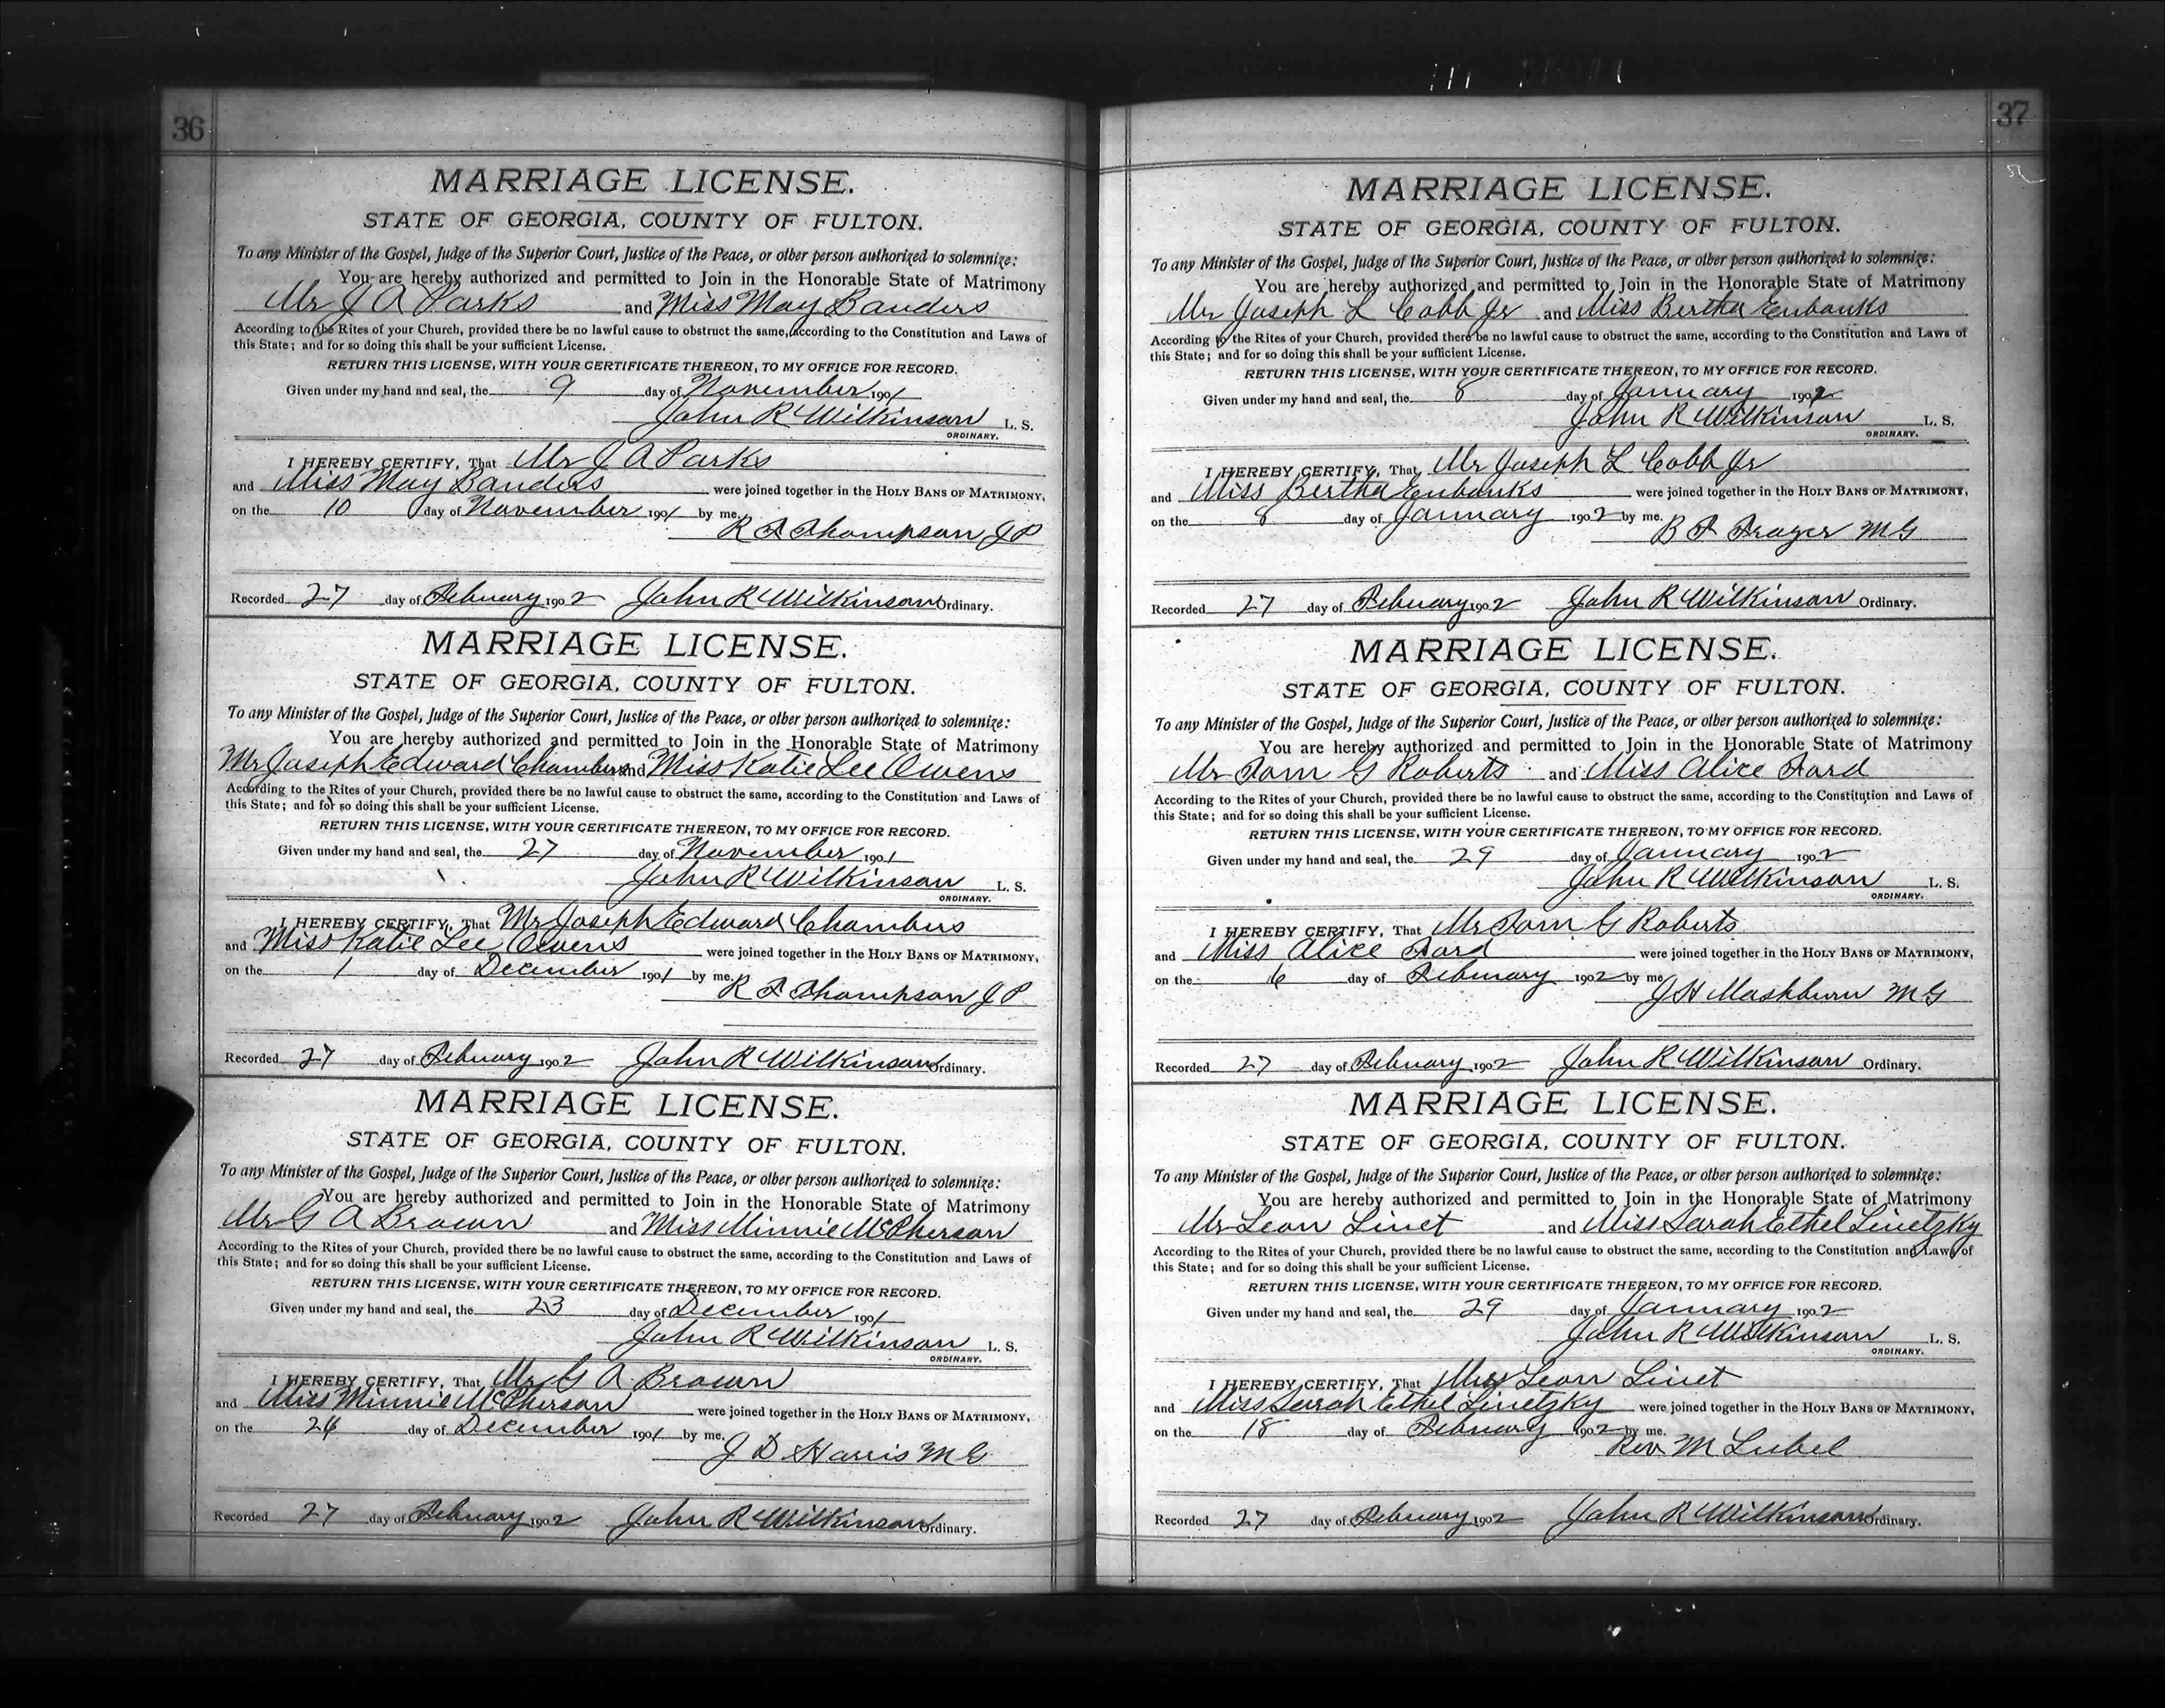 36
MARRIAGE LICENSE.
STATE OF GEORGIA, COUNTY OF FULTON.
To any Minister of the Gospel, Judge of the Superior Court, Justice of the Peace, or other person authorized to solemnize:
You are hereby authorized and permitted to Join in the Honorable State of Matrimony
Mr J A Parks and Miss May Banders
According to the Rites of your Church, provided there be no lawful cause to obstruct the same, according to the Constitution and Laws of
this State; and for so doing this shall be your sufficient License.
RETURN THIS LICENSE, WITH YOUR CERTIFICATE THEREON, TO MY OFFICE FOR RECORD.
Given under my hand and seal, the 9 day of November 1901
John R Wilkinson L. S.
ORDINARY.
I HEREBY CERTIFY, That Mr J A Parks
and Miss May Banders were joined together in the HOLY BANS OF MATRIMONY,
on the 10 day of November 1901 by me.
R F Thompson J P
Recorded 27 day of February 1902 John R Wilkinson Ordinary.
MARRIAGE LICENSE.
STATE OF GEORGIA, COUNTY OF FULTON.
To any Minister of the Gospel, Judge of the Superior Court, Justice of the Peace, or other person authorized to solemnize:
You are hereby authorized and permitted to Join in the Honorable State of Matrimony
Mr Joseph Edward Chambers and Miss Katie Lee Owens
According to the Rites of your Church, provided there be no lawful cause to obstruct the same, according to the Constitution and Laws of
this State; and for so doing this shall be your sufficient License.
RETURN THIS LICENSE, WITH YOUR CERTIFICATE THEREON, TO MY OFFICE FOR RECORD.
Given under my hand and seal, the 27 day of November 1901
John R Wilkinson L. S.
ORDINARY.
I HEREBY CERTIFY, That Mr Joseph Edward Chambers
and Miss Katie Lee Owens were joined together in the HOLY BANS OF MATRIMONY,
on the 1 day of December 1901 by me.
R F Thompson J P
Recorded 27 day of February 1902 John R Wilkinson Ordinary.
MARRIAGE LICENSE.
STATE OF GEORGIA, COUNTY OF FULTON.
To any Minister of the Gospel, Judge of the Superior Court, Justice of the Peace, or other person authorized to solemnize:
You are hereby authorized and permitted to Join in the Honorable State of Matrimony
Mr G A Brown and Miss Minnie McPherson
According to the Rites of your Church, provided there be no lawful cause to obstruct the same, according to the Constitution and Laws of
this State; and for so doing this shall be your sufficient License.
RETURN THIS LICENSE, WITH YOUR CERTIFICATE THEREON, TO MY OFFICE FOR RECORD.
Given under my hand and seal, the 23 day of December 1901
John R Wilkinson L. S.
ORDINARY.
I HEREBY CERTIFY, That Mr G A Brown
and Miss Minnie McPherson were joined together in the HOLY BANS OF MATRIMONY,
on the 24 day of December 1901 by me.
J D Harris M G
Recorded 27 day of February 1902 John R Wilkinson Ordinary.
37
MARRIAGE LICENSE.
STATE OF GEORGIA, COUNTY OF FULTON.
To any Minister of the Gospel, Judge of the Superior Court, Justice of the Peace, or other person authorized to solemnize:
You are hereby authorized and permitted to Join in the Honorable State of Matrimony
Mr Joseph L Cobb Jr and Miss Bertha Eubanks
According to the Rites of your Church, provided there be no lawful cause to obstruct the same, according to the Constitution and Laws of
this State; and for so doing this shall be your sufficient License.
RETURN THIS LICENSE, WITH YOUR CERTIFICATE THEREON, TO MY OFFICE FOR RECORD.
Given under my hand and seal, the 8 day of January 1902
John R Wilkinson L. S.
ORDINARY.
I HEREBY CERTIFY, That Mr Joseph L Cobb Jr
and Miss Bertha Eubanks were joined together in the HOLY BANS OF MATRIMONY,
on the 8 day of January 1902 by me.
B F Frazer M G
Recorded 27 day of February 1902 John R Wilkinson Ordinary.
MARRIAGE LICENSE.
STATE OF GEORGIA, COUNTY OF FULTON.
To any Minister of the Gospel, Judge of the Superior Court, Justice of the Peace, or other person authorized to solemnize:
You are hereby authorized and permitted to Join in the Honorable State of Matrimony
Mr Tom G Roberts and Miss Alice Ford
According to the Rites of your Church, provided there be no lawful cause to obstruct the same, according to the Constitution and Laws of
this State; and for so doing this shall be your sufficient License.
RETURN THIS LICENSE, WITH YOUR CERTIFICATE THEREON, TO MY OFFICE FOR RECORD.
Given under my hand and seal, the 29 day of January 1902
John R Wilkinson L. S.
ORDINARY.
I HEREBY CERTIFY, That Mr Tom G Roberts
and Miss Alice Ford were joined together in the HOLY BANS OF MATRIMONY,
on the 6 day of February 1902 by me
J H Mashburn M G
Recorded 27 day of February 1902 John R Wilkinson Ordinary.
MARRIAGE LICENSE.
STATE OF GEORGIA, COUNTY OF FULTON.
To any Minister of the Gospel, Judge of the Superior Court, Justice of the Peace, or other person authorized to solemnize:
You are hereby authorized and permitted to Join in the Honorable State of Matrimony
Mr Leon Linet and Miss Sarah Ethel Linetzky
According to the Rites of your Church, provided there be no lawful cause to obstruct the same, according to the Constitution and Laws of
this State; and for so doing this shall be your sufficient License.
RETURN THIS LICENSE, WITH YOUR CERTIFICATE THEREON, TO MY OFFICE FOR RECORD.
Given under my hand and seal, the 29 day of January 1902
John R Wilkinson L. S.
ORDINARY.
I HEREBY CERTIFY, That Mr Leon Linet
and Miss Sarah Ethel Linetzky were joined together in the HOLY BANS OF MATRIMONY,
on the 18 day of February 1902 by me.
Rev M Lubel
Recorded 27 day of February 1902 John R Wilkinson Ordinary.